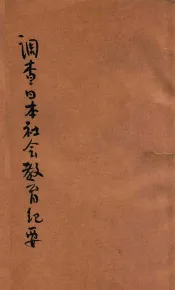 调查日本社会教育纪要